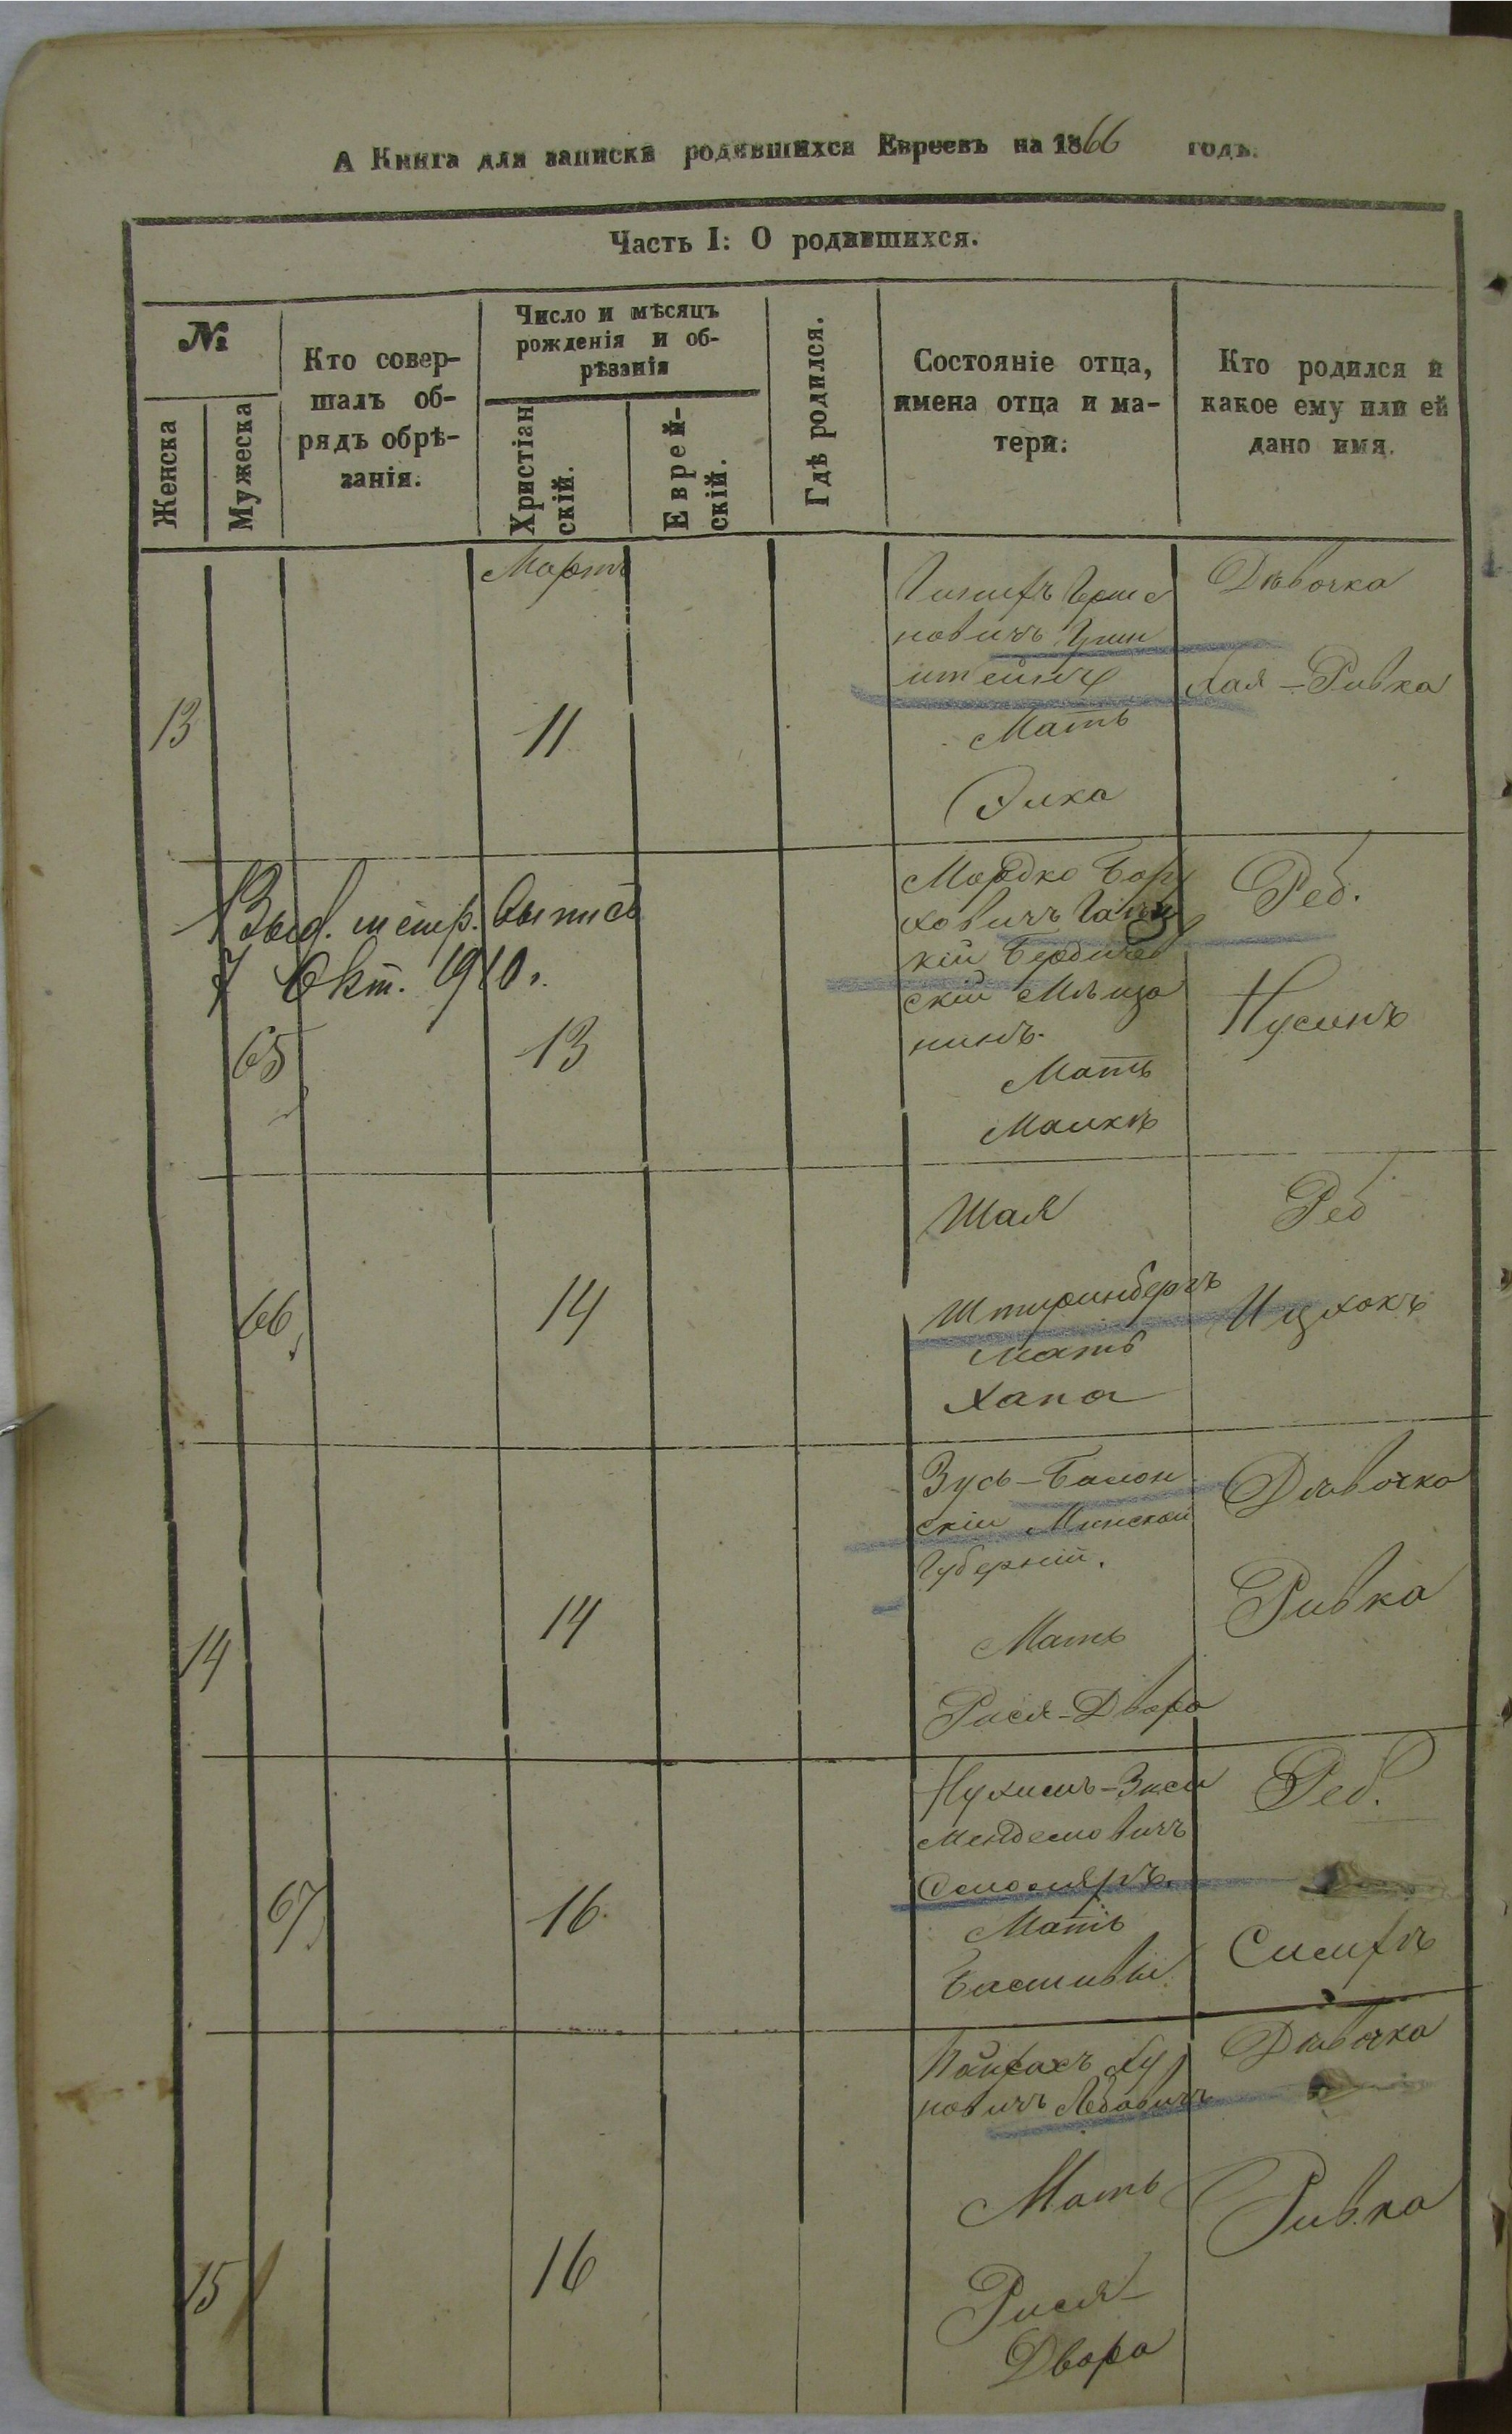 А Книга для записки родившихся Евреевъ на 1866 годъ.
Часть I: О родившихся.
№
Женска
Мужеска
Кто совер-
шалъ об-
рядъ обрѣ-
занія.
Число и мѣсяцъ
рожденія и об-
рѣзанія
Христіан
скій.
Еврей-
скій.
Гдѣ родился.
Состояніе отца,
имена отца и ма-
тери:
Кто родился и
какое ему или ей
дано имя.
Мартъ
13
11
новичъ Грин
штейнъ
Мать
Элка
Дѣвочка
Хая-Ривка
Выд. метр. выпись
7 Окт. 1910 г.
65
13
Мордко Бору
ховичъ
кій Бердичев
скій Мѣща
нинъ.
Мать
Малкѣ
Реб.
Нусинъ
66
14
Шая
Штиринбергъ
Мать
Хана
Реб
Ицхокъ
14
14
Зусь-
скій Минской
Губерніи.
Мать
Рися-Двора
Дѣвочка
Ривка
67
16.
Менделовичъ
Мать
Реб.
15
16
новичъ Лебовичъ
Мать
Рися-
Двора
Дѣвочка
Ривка